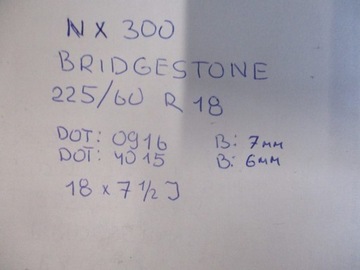 NX 300
BRIDGESTONE
225/60 R 18
DOT: 0916 B: 7мм
DOT: 4015 B: 6мм
18 x 7 1/2 J